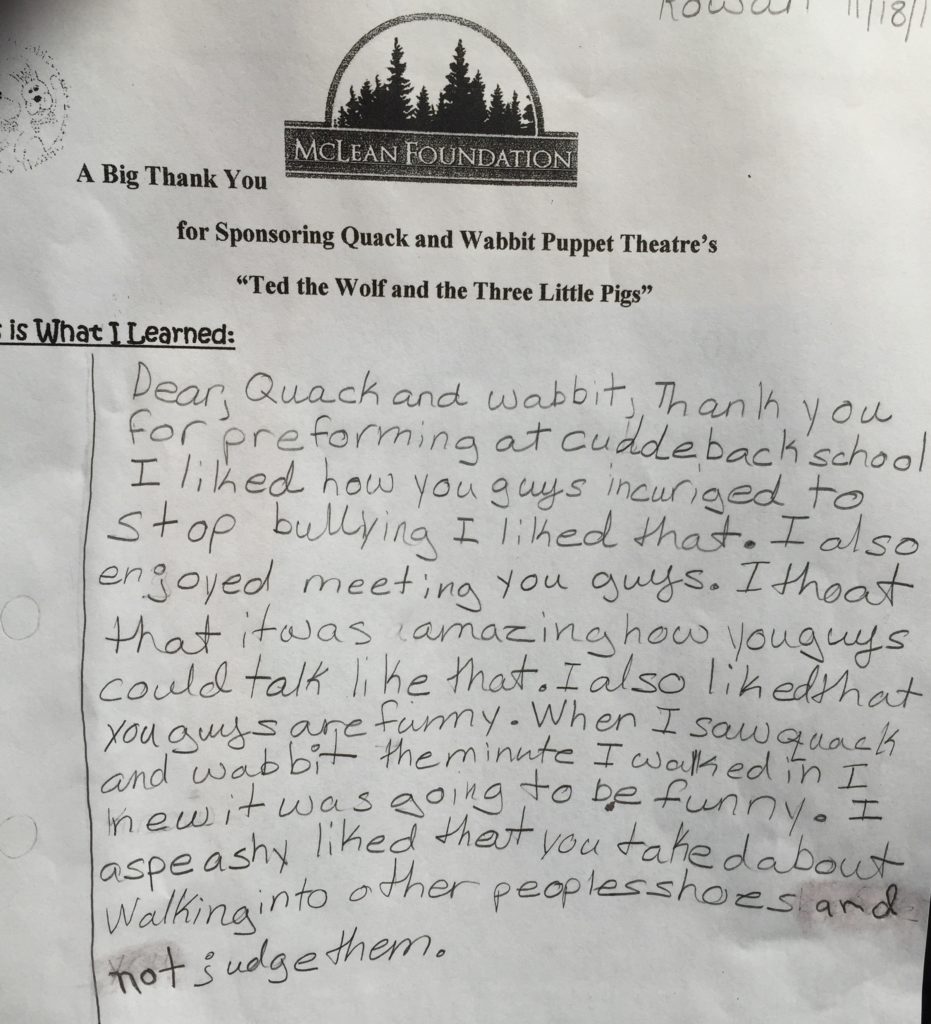 Rowan 11/18/1
McLean Foundation
A Big Thank You
for Sponsoring Quack and Wabbit Puppet Theatre's
“Ted the Wolf and the Three Little Pigs”
is What I Learned:
Dear, Quack and wabbit, Thank you
for preforming at cuddeback school
I liked how you guys incuriged to
stop bullying I liked that. I also
enjoyed meeting you guys. I thoat
that it was amazing how you guys
could talk like that. I also liked that
you guys are funny. When I saw quack
and wabbit the minute I walked in I
knew it was going to be funny. I
aspeashy liked that you takedabout
Walking into other peoples shoes and
not judge them.